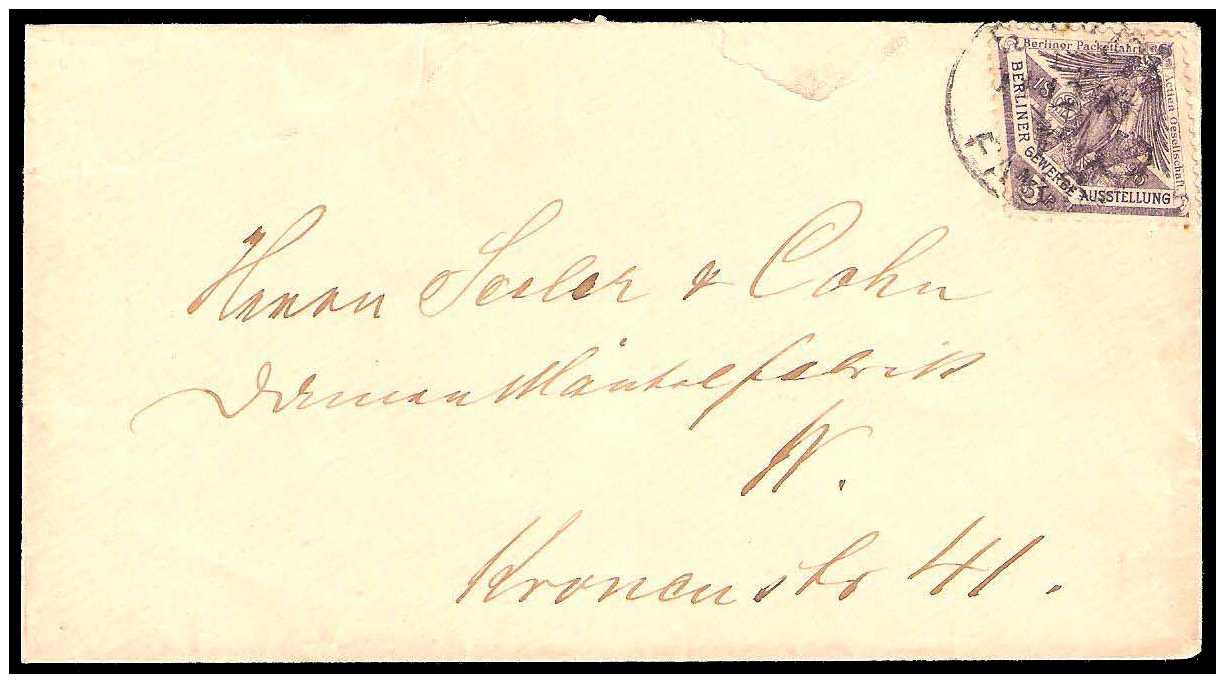 Berliner Packetfahrt
Actien Gesellschaft
BERLINER GEWERBE AUSSTELLUNG
18 96
3
Herren Seeler & Cohn
Damen Mäntelfabrik
W.
Kronenstr 41.